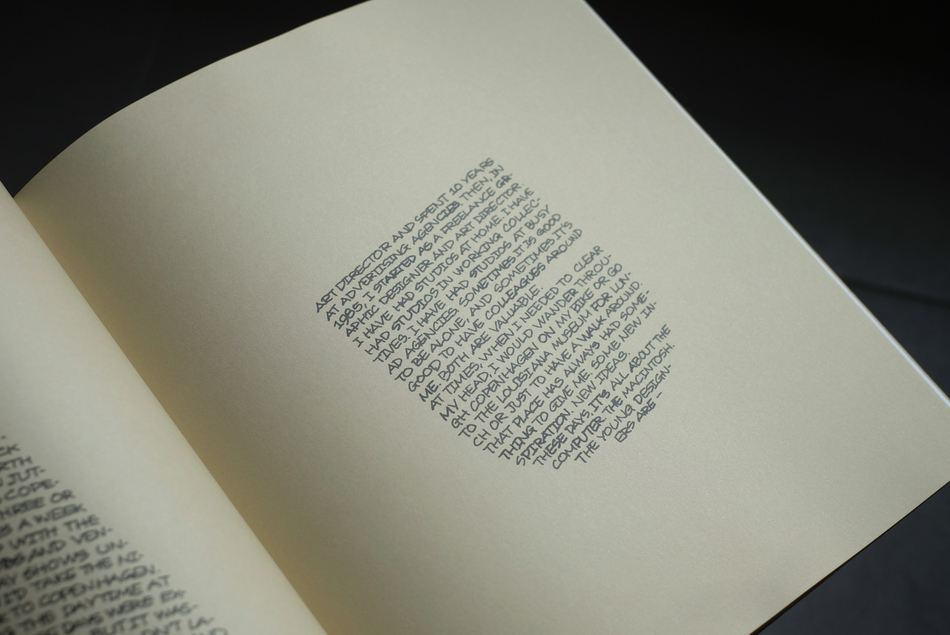 CK
RTH
JUT-
COPE-
THREE OR
S A WEEK
P WITH THE
AND VEN-
AY SHOWS UN-
I'D TAKE THE NI-
TO COPENHAGEN.
THE DAYTIME AT
DAYS WERE EX-
BUT IT WAS-
LA-
ART DIRECTOR AND SPENT 10 YEARS
AT ADVERTISING AGENCIES THEN, IN
1985, I STARTED AS A FREELANCE GR-
APHIC DESIGNER AND ART DIRECTOR
I HAVE HAD STUDIOS AT HOME, I HAVE
HAD STUDIOS IN WORKING COLLEC-
TIVES, I HAVE HAD STUDIOS AT BUSY
AD AGENCIES. SOMETIMES IT IS GOOD
TO BE ALONE, AND SOMETIMES IT'S
GOOD TO HAVE COLLEAGUES AROUND
ME. BOTH ARE VALUABLE.
AT TIMES, WHEN I NEEDED TO CLEAR
MY HEAD, I WOULD WANDER THROU-
GH COPENHAGEN ON MY BIKE OR GO
TO THE LOUISIANA MUSEUM FOR LUN-
CH OR JUST TO HAVE A WALK AROUND.
THAT PLACE HAS ALWAYS HAD SOME-
THING TO GIVE ME SOME NEW IN-
SPIRATION. NEW IDEAS.
THESE DAYS, IT'S ALL ABOUT THE
COMPUTER THE MACINTOSH.
THE YOUNG DESIGN-
ERS ARE -